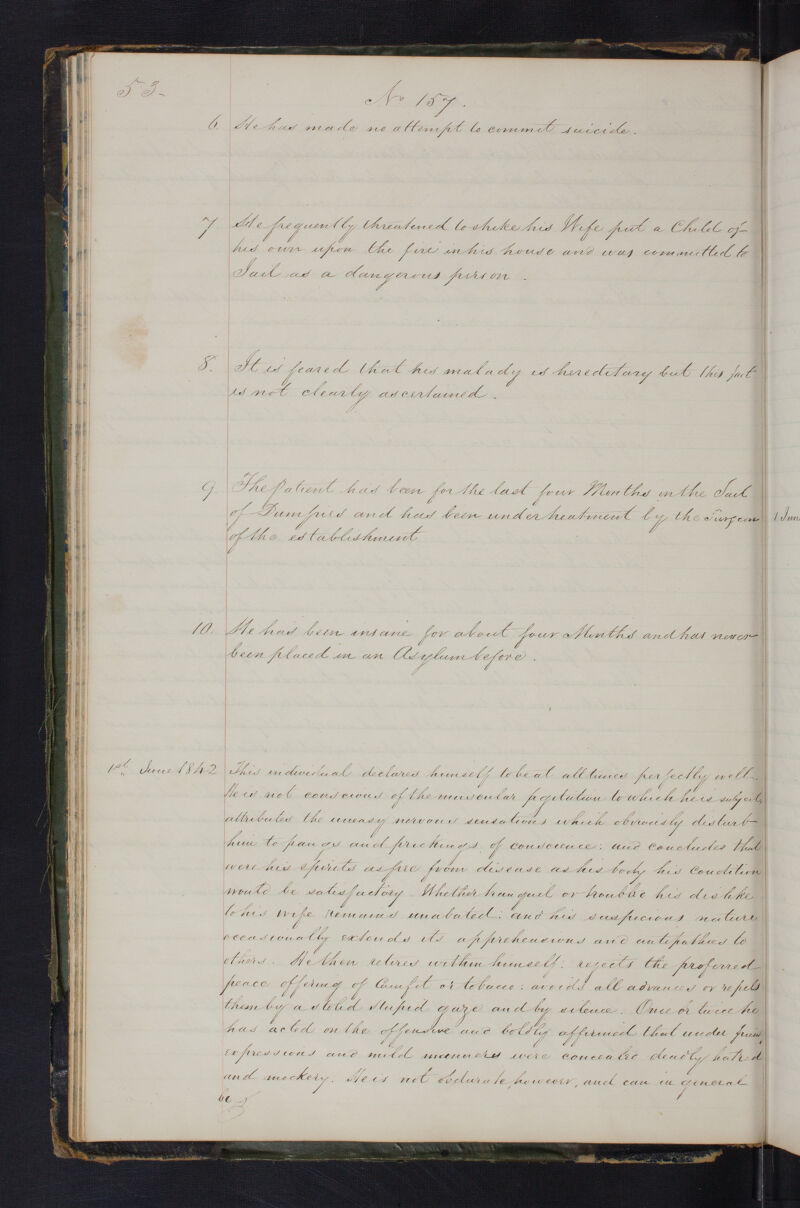 53-
No 157.
6 He has made no attempt to commit suicide.
7 He frequently threatened to strike his Wife put a Child of
his own upon the fire in his house and was committed to
Jail as a dangerous person.
8. It is feared that his malady is hereditary but this fact
is not clearly ascertained.
9. The patient has been for the last four Months in the Jail
of Dumfries and has been under treatment by the Surgeon
of the establishment
10. He has been insane for about four Months and has never
been placed in an Asylum before.
1st June 1842 This individual declares himself to be at all times perfectly well.
He is not conscious of the muscular agitation to which he is subject,
attributes the uneasy nervous sensations which obviously disturb
him to pangs and prickings of conscience: and concludes that
were his spirits as free from disease as his body his condition
would be satisfactory. Whether tranquil or trouble his dislike
to his wife remains unabated: and his suspicious nature
occasionally extends its apprehensions and antipathies to
others. He then retires within himself: rejects the proferred
peace offering of Comfit or tobacco: avoids all advances or repels
them by a stolid stupid gaze and by silence. Once or twice he
has acted on the offensive and boldly affirmed that under
expressions and mild manners were concealed deadly hatred
and mockery. He is not obdurate, however, and can in general
be
1 Jun